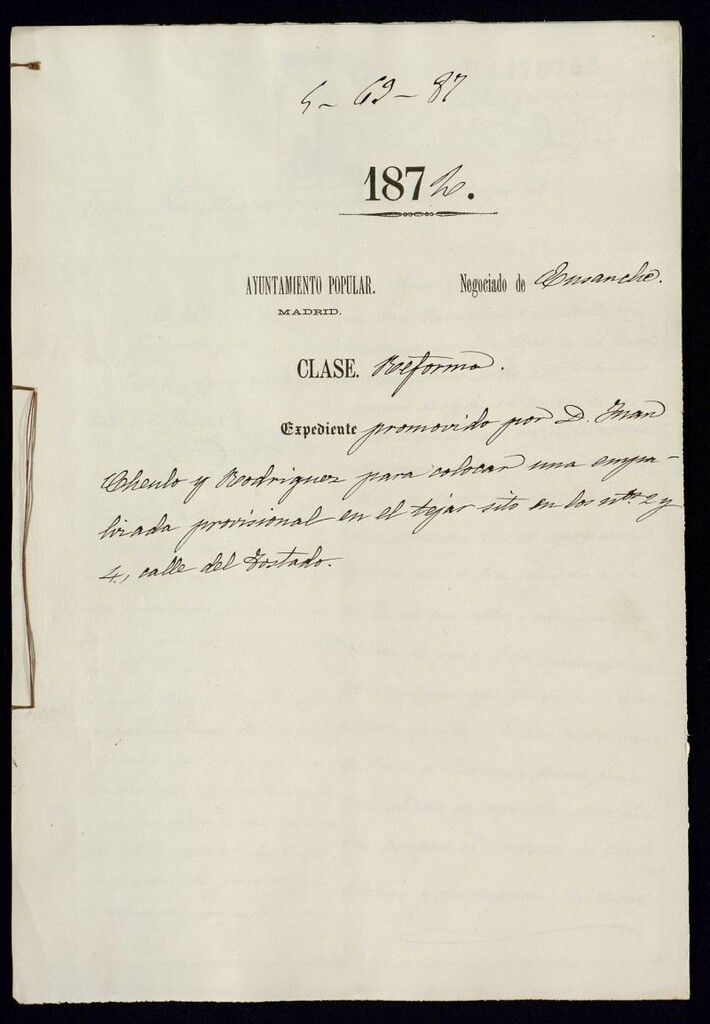 5-69-87
1872.
AYUNTAMIENTO POPULAR. Negociado de Ensanche.
MADRID.
CLASE. Reforma.
Expediente promovido por D. Juan
y Rodriguez para colocar una empa-
lizada provisional en el tejar sito en los nos. 2 y
4, calle del Tostado.